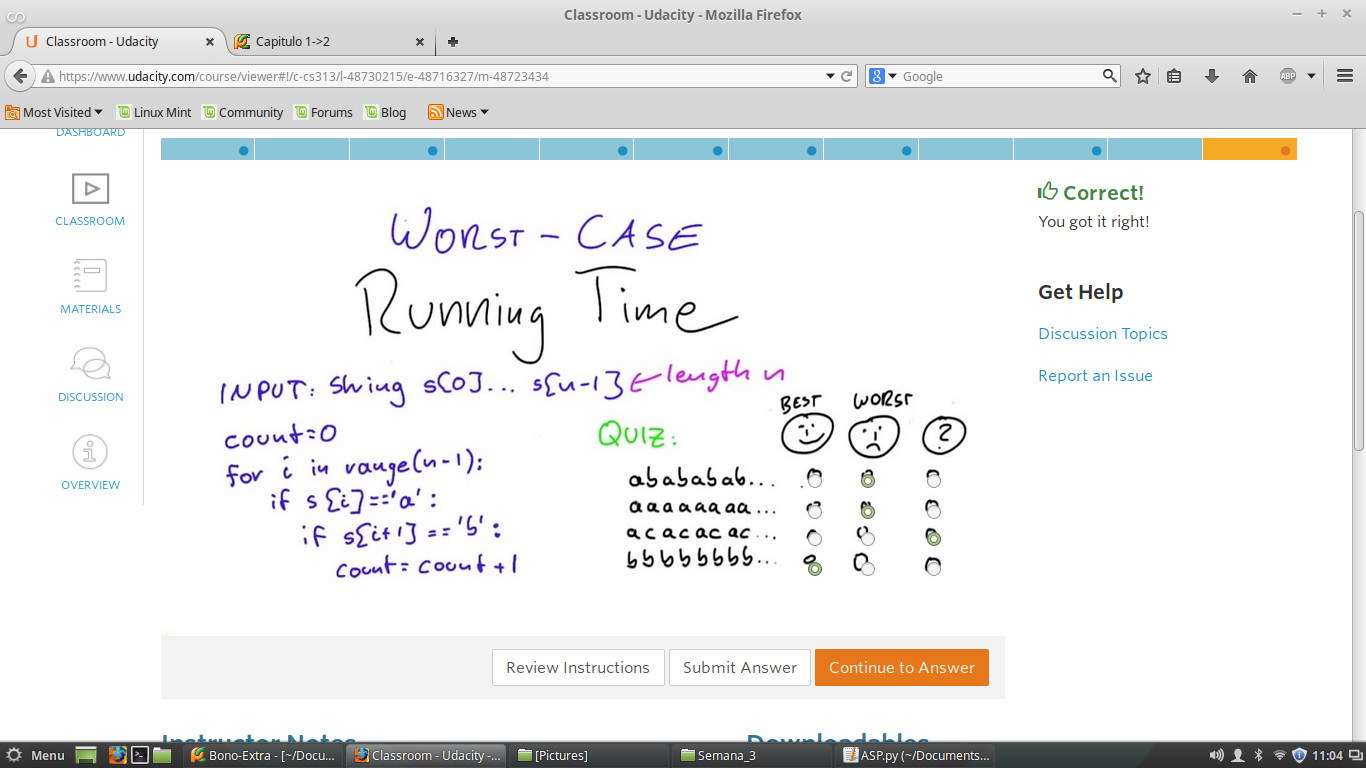 Classroom - Udacity - Mozilla Firefox
Classroom - Udacity
Capitulo 1->2
https://www.udacity.com/course/viewer#!/c-cs313/l-48730215/e-48716327/m-48723434
Google
ABP
Most Visited
Linux Mint
Community
Forums
Blog
News
DASHBOARD
CLASSROOM
MATERIALS
DISCUSSION
OVERVIEW
WORST - CASE
Running Time
INPUT: String s[0]... s[n-1] ← length n
count=0
for i in range(n-1):
if s[i]=='a':
if s[i+1]=='b':
count=count+1
QUIZ:
BEST WORST
?
abababab...
aaaaaaaa...
acacacac...
bbbbbbbb...
Correct!
You got it right!
Get Help
Discussion Topics
Report an Issue
Review Instructions
Submit Answer
Continue to Answer
Instructor Notes
Downloadables
Menu
Bono-Extra - [~/Docu...
Classroom - Udacity -...
[Pictures]
Semana_3
ASP.py (~/Documents...
11:04